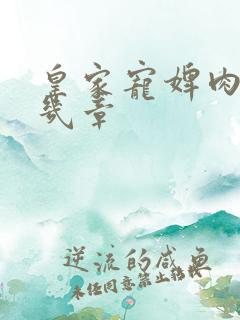 皇家寵婢肉
幾章
逆流的咸鱼
未经同意禁止转载